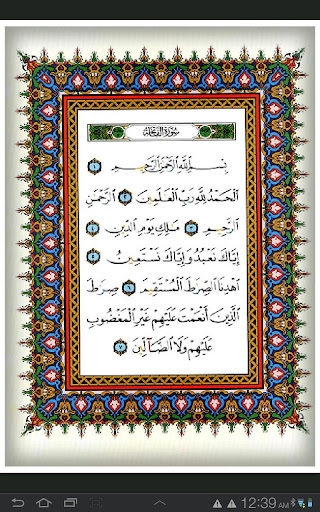 سُورَةُ الفَاتِحَةِ
بِسْمِ ٱللَّهِ ٱلرَّحْمَٰنِ ٱلرَّحِيمِ ١
ٱلْحَمْدُ لِلَّهِ رَبِّ ٱلْعَٰلَمِينَ ٢ ٱلرَّحْمَٰنِ
ٱلرَّحِيمِ ٣ مَٰلِكِ يَوْمِ ٱلدِّينِ ٤
إِيَّاكَ نَعْبُدُ وَإِيَّاكَ نَسْتَعِينُ ٥
ٱهْدِنَا ٱلصِّرَٰطَ ٱلْمُسْتَقِيمَ ٦ صِرَٰطَ
ٱلَّذِينَ أَنْعَمْتَ عَلَيْهِمْ غَيْرِ ٱلْمَغْضُوبِ
عَلَيْهِمْ وَلَا ٱلضَّآلِّينَ ٧
12:39 AM